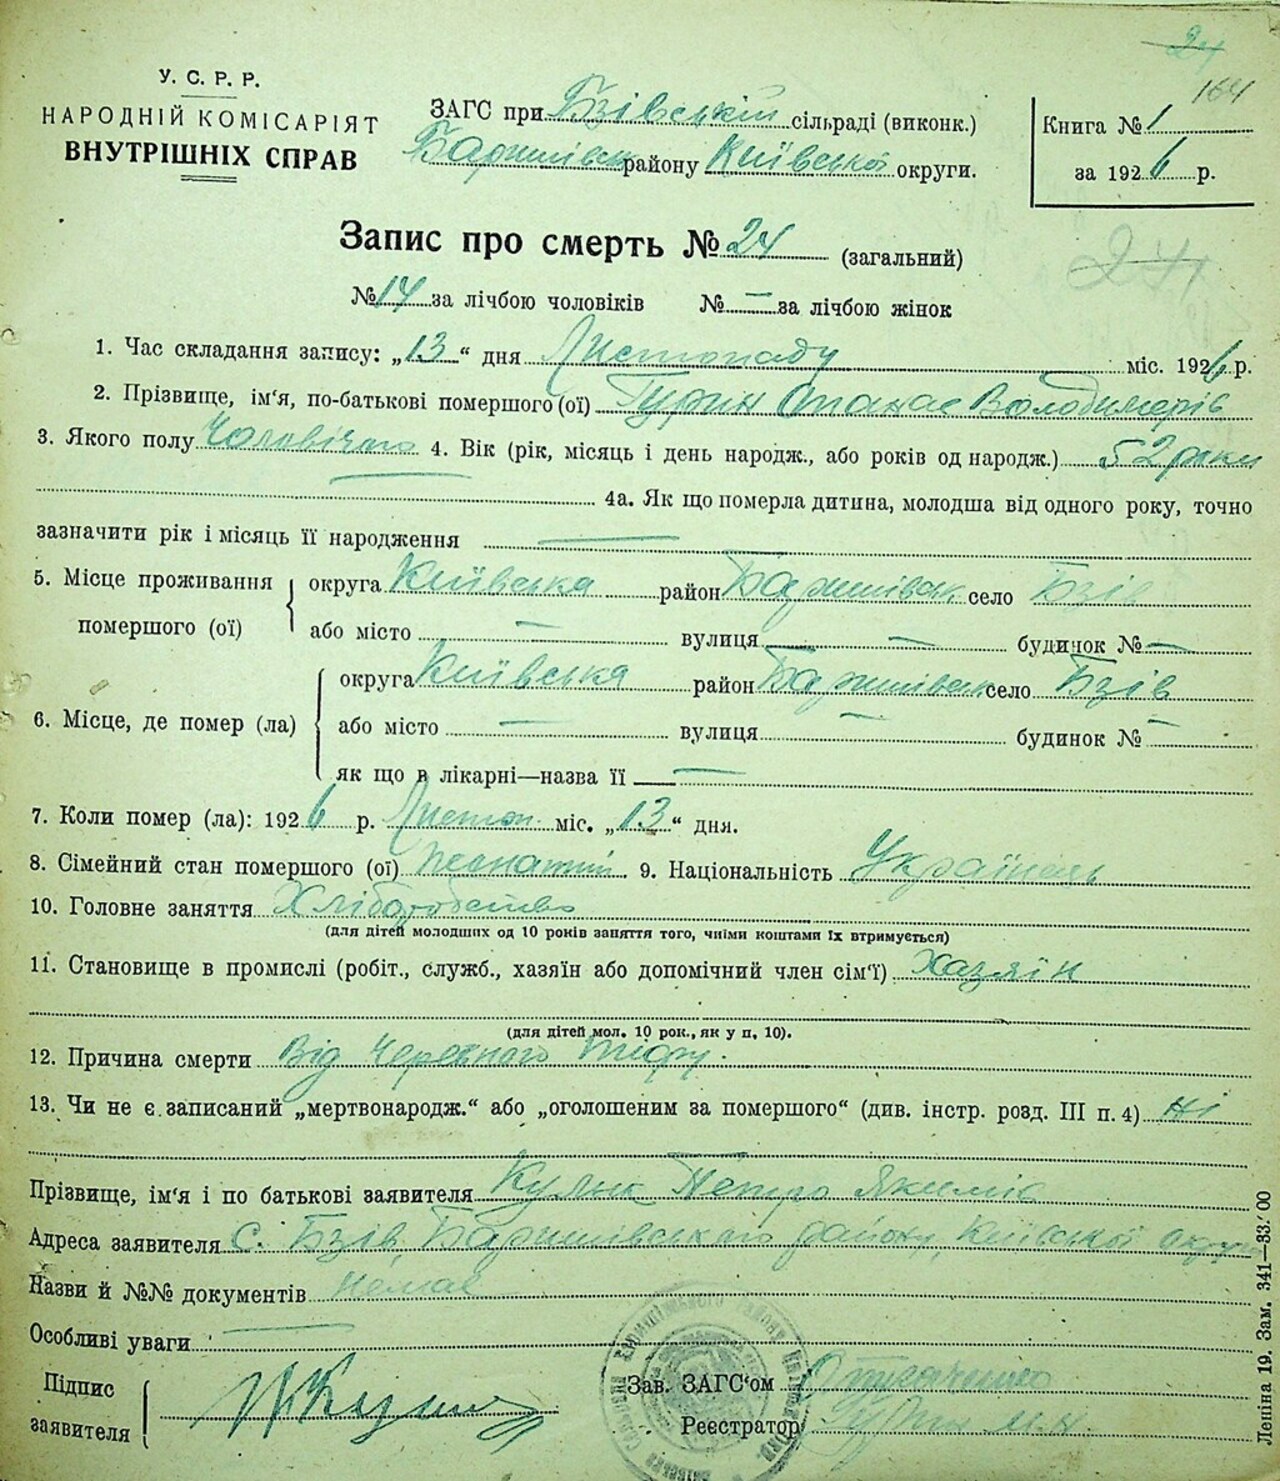 24
164
У. С. Р. Р.
НАРОДНІЙ КОМІСАРІЯТ
ВНУТРІШНІХ СПРАВ
ЗАГС при Бзівській сільраді (виконк.)
Баришівськ району Київської округи.
Книга № 1
за 1926 р.
Запис про смерть № 24 (загальний)
24
№ 14 за лічбою чоловіків № — за лічбою жінок
1. Час складання запису: „13“ дня Листопаду міс. 1926 р.
2. Прізвище, ім'я, по-батькові помершого (ої) Гурин Опанас Володимерів
3. Якого полу Чоловічого 4. Вік (рік, місяць і день народж., або років од народж.) 52 роки
— 4а. Як що померла дитина, молодша від одного року, точно
зазначити рік і місяць її народження —
5. Місце проживання помершого (ої) округа Київська район Баришівськ село Бзів
або місто — вулиця — будинок № —
6. Місце, де помер (ла) округа Київська район Баришівськ село Бзів
або місто — вулиця — будинок № —
як що в лікарні—назва її —
7. Коли помер (ла): 1926 р. Листоп. міс. „13“ дня.
8. Сімейний стан помершого (ої) 9. Національність Українець
10. Головне заняття Хліборобство
(для дітей молодших од 10 років заняття того, чиїми коштами їх втримується)
11. Становище в промислі (робіт., служб., хазяїн або допомічний член сім'ї) Хазяїн
(для дітей мол. 10 рок., як у п. 10).
12. Причина смерти Від Черевного тифу.
13. Чи не є записаний „мертвонародж.“ або „оголошеним за помершого“ (див. інстр. розд. III п. 4) ні
Прізвище, ім'я і по батькові заявителя Петро Якимів
Адреса заявителя с. Бзів, Баришівського району, Київської округи
Назви й №№ документів Немає
Особливі уваги —
Підпис заявителя
Зав. ЗАГС'ом
Реєстратор Гурин М. Н.
Леніна 19. Зам. 341—33.' 00